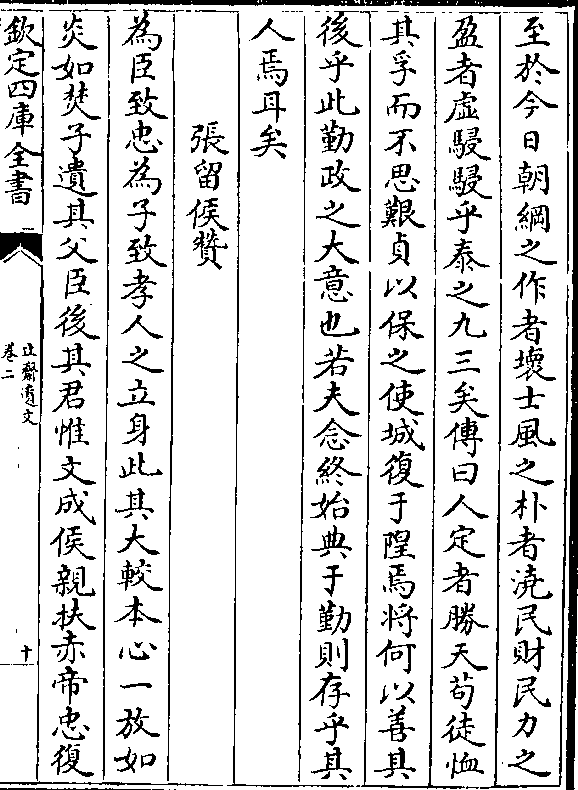 至於今日朝綱之作者壞士風之朴者澆民財民力之
盈者虛駸駸乎泰之九三矣傳曰人定者勝天苟徒恤
其孚而不思艱貞以保之使城復于隍焉將何以善其
後乎此勤政之大意也若夫念終始典于勤則存乎其
人焉耳矣
張留侯贊
為臣致忠為子致孝人之立身此其大較本心一放如
炎如焚子遺其父臣後其君惟文成侯親扶赤帝忠復
欽定四庫全書
止齋遺文
卷二
十